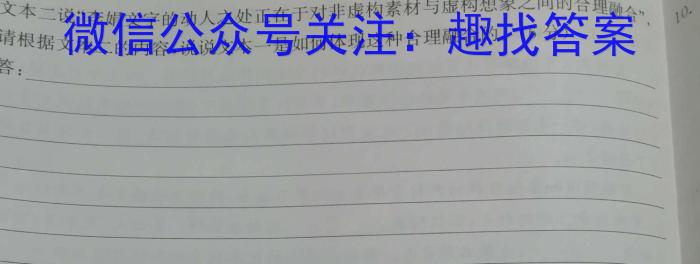 文本二说,“李娟文字的动人之处正在于对非虚构素材与虚构想象之间的合理融合”,
10.
请根据文本二的内容,说说文本一是如何体现这种合理融合的。
微信公众号关注:趣找答案
答: